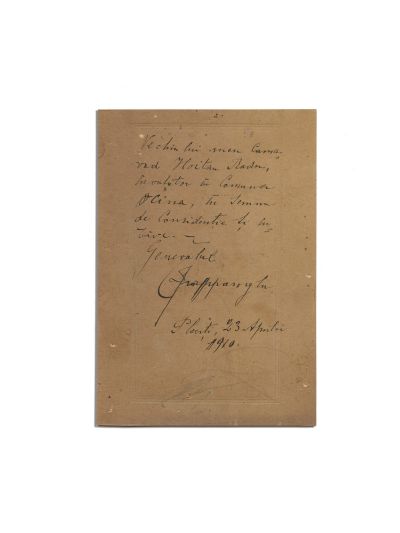 2.
Vechiu lui meu Cama-
rad Hoitan Radu,
învatator în Comuna
Slina, în Semn
de Consideratie și iu-
bire. —
Generalul
Ploesti, 23 Aprilie
1910.